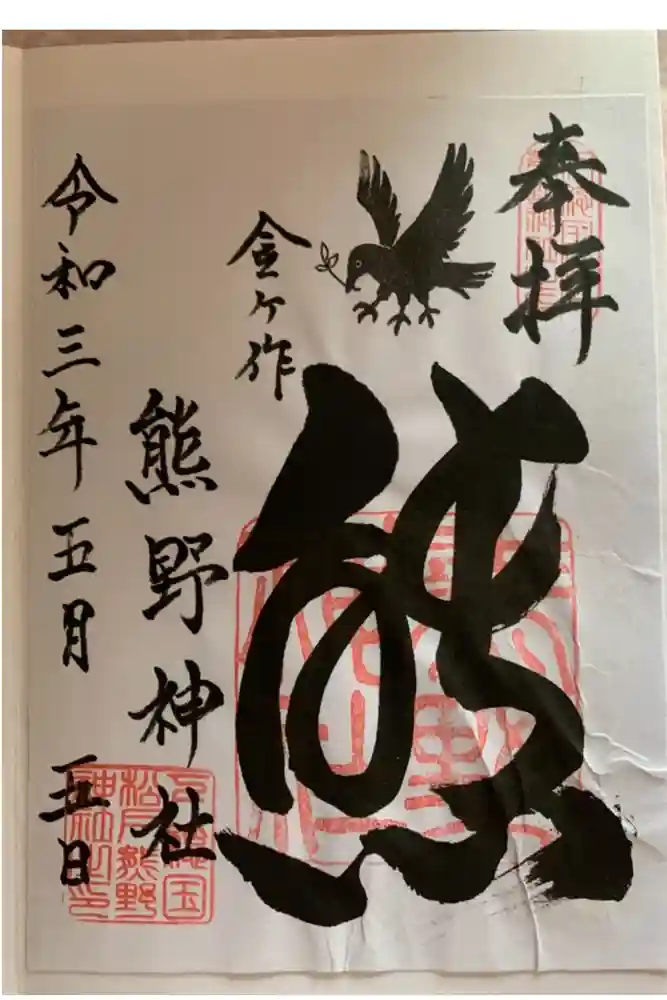 奉拝
熊
金ケ作
熊野神社
令和三年五月五日